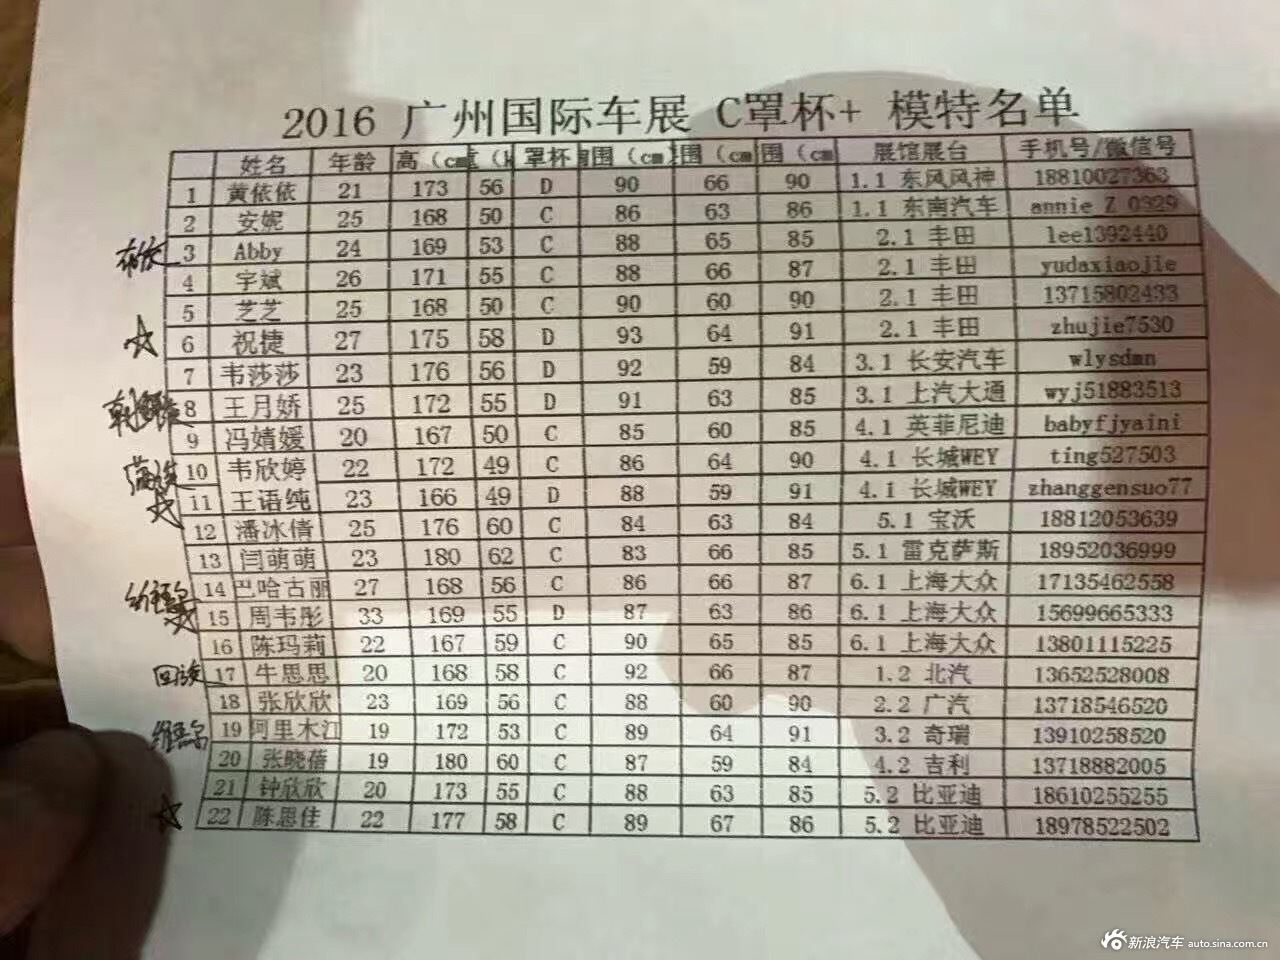 2016 广州国际车展 C罩杯+ 模特名单
姓名 年龄 高（cm 罩杯 围（cm 围（cm 围（cm 展馆展台 手机号/微信号
1 黄依依 21 173 56 D 90 66 90 1.1 东风风神 18810027363
2 安妮 25 168 50 C 86 63 86 1.1 东南汽车 annie Z 0329
3 Abby 24 169 53 C 88 65 85 2.1 丰田 lee1392440
4 宇斌 26 171 55 C 88 66 87 2.1 丰田 yudaxiaojie
5 芝芝 25 168 50 C 90 60 90 2.1 丰田 13715802433
6 祝捷 27 175 58 D 93 64 91 2.1 丰田 zhujie7530
7 韦莎莎 23 176 56 D 92 59 84 3.1 长安汽车 wlysdmn
8 王月娇 25 172 55 D 91 63 85 3.1 上汽大通 wyj51883513
9 冯婧媛 20 167 50 C 85 60 85 4.1 英菲尼迪 babyfjyaini
10 韦欣婷 22 172 49 C 86 64 90 4.1 长城WEY ting527503
11 王语纯 23 166 49 D 88 59 91 4.1 长城WEY zhanggensuo77
12 潘冰倩 25 176 60 C 84 63 84 5.1 宝沃 18812053639
13 闫萌萌 23 180 62 C 83 66 85 5.1 雷克萨斯 18952036999
14 巴哈古丽 27 168 56 C 86 66 87 6.1 上海大众 17135462558
15 周韦彤 33 169 55 D 87 63 86 6.1 上海大众 15699665333
16 陈玛莉 22 167 59 C 90 65 85 6.1 上海大众 13801115225
回族 17 牛思思 20 168 58 C 92 66 87 1.2 北汽 13652528008
18 张欣欣 23 169 56 C 88 60 90 2.2 广汽 13718546520
维吾尔 19 阿里木江 19 172 53 C 89 64 91 3.2 奇瑞 13910258520
20 张晓蓓 19 180 60 C 87 59 84 4.2 吉利 13718882005
21 钟欣欣 20 173 55 C 88 63 85 5.2 比亚迪 18610255255
22 陈思佳 22 177 58 C 89 67 86 5.2 比亚迪 18978522502
新浪汽车 auto.sina.com.cn